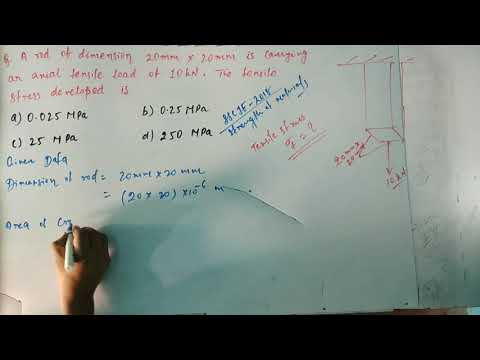 Q. A rod of dimension 20mm x 20mm is carrying
an axial tensile load of 10 kN. The tensile
stress developed is
a) 0.025 MPa
b) 0.25 MPa
c) 25 MPa
d) 250 MPa
SSC JE-2015
Strength of materials
Tensile stress
σt = ?
Given Data
Dimension of rod = 20mm x 20 mm
= (20 x 20) x 10-6 m
Area of
20mm
10 kN